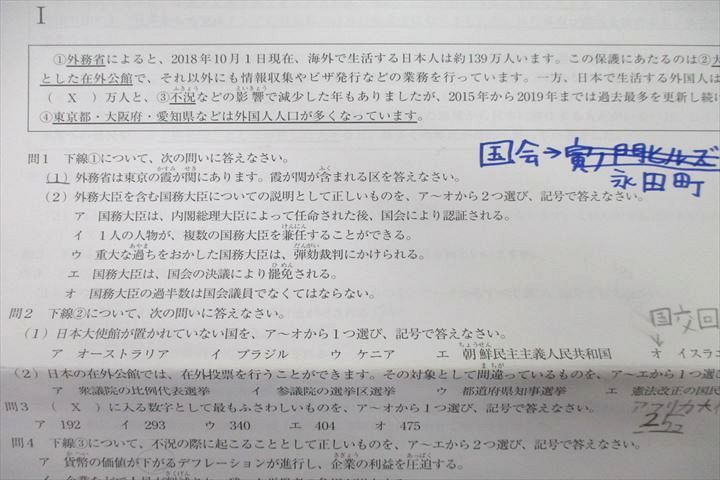 I
①外務省によると、2018年10月1日現在、海外で生活する日本人は約139万人います。この保護にあたるのは②大
とした在外公館で、それ以外にも情報収集やビザ発行などの業務を行っています。一方、日本で生活する外国人は
( X )万人と、③不況などの影響で減少した年もありましたが、2015年から2019年までは過去最多を更新し続け
④東京都・大阪府・愛知県などは外国人人口が多くなっています。
国会→
永田町
問1 下線①について、次の問いに答えなさい。
(1) 外務省は東京の霞が関にあります。霞が関が含まれる区を答えなさい。
(2) 外務大臣を含む国務大臣についての説明として正しいものを、ア~オから2つ選び、記号で答えなさい。
ア 国務大臣は、内閣総理大臣によって任命された後、国会により認証される。
イ 1人の人物が、複数の国務大臣を兼任することができる。
ウ 重大な過ちをおかした国務大臣は、弾劾裁判にかけられる。
エ 国務大臣は、国会の決議により罷免される。
オ 国務大臣の過半数は国会議員でなくてはならない。
問2 下線②について、次の問いに答えなさい。
国交回
(1) 日本大使館が置かれていない国を、ア~オから1つ選び、記号で答えなさい。
ア オーストラリア イ ブラジル ウ ケニア エ 朝鮮民主主義人民共和国 オ イスラエ
(2) 日本の在外公館では、在外投票を行うことができます。その対象として間違っているものを、ア~エから1つ選び
ア 衆議院の比例代表選挙 イ 参議院の選挙区選挙 ウ 都道府県知事選挙 エ 憲法改正の国民
問3 ( X )に入る数字として最もふさわしいものを、ア~オから1つ選び、記号で答えなさい。
ア 192 イ 293 ウ 340 エ 404 オ 475
問4 下線③について、不況の際に起こることとして正しいものを、ア~エから2つ選び、記号で答えなさい。
ア 貨幣の価値が下がるデフレーションが進行し、企業の利益を圧迫する。